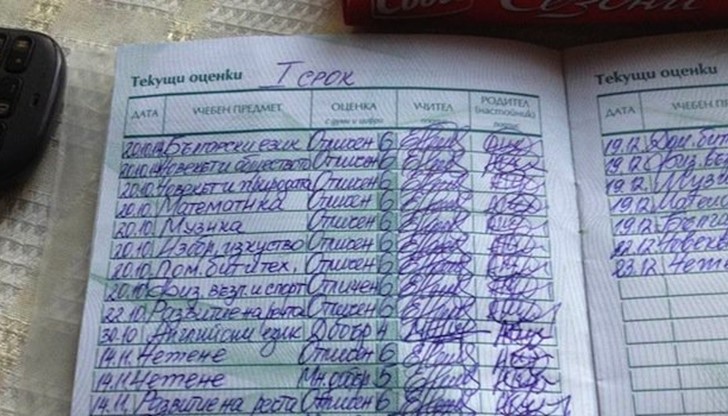 Текущи оценки I срок
ДАТА УЧЕБЕН ПРЕДМЕТ ОЦЕНКА УЧИТЕЛ РОДИТЕЛ
(настойник)
с думи и цифри подпис подпис
20.10. Български език Отличен 6
20.10. Човекът и обществото Отличен 6
20.10. Човекът и природата Отличен 6
20.10. Математика Отличен 6
20.10. Музика Отличен 6
20.10. Изобр. изкуство Отличен 6
20.10. Дом. бит и тех. Отличен 6
20.10. Физ. възп. и спорт Отличен 6
22.10. Развитие на речта Отличен 6
30.10 Английски език Добър 4
14.11. Четене Отличен 6
14.11 Четене Мн. добър 5
14.11. Развитие на речта Отличен 6
Текущи оценки
ДАТА УЧЕБЕН ПРЕ
19.12. Дом. бит
19.12. Физ. въз
19.12. Музи
19.12. Матем
19.12. Бълга
22.12. Човек
23.12. Чете